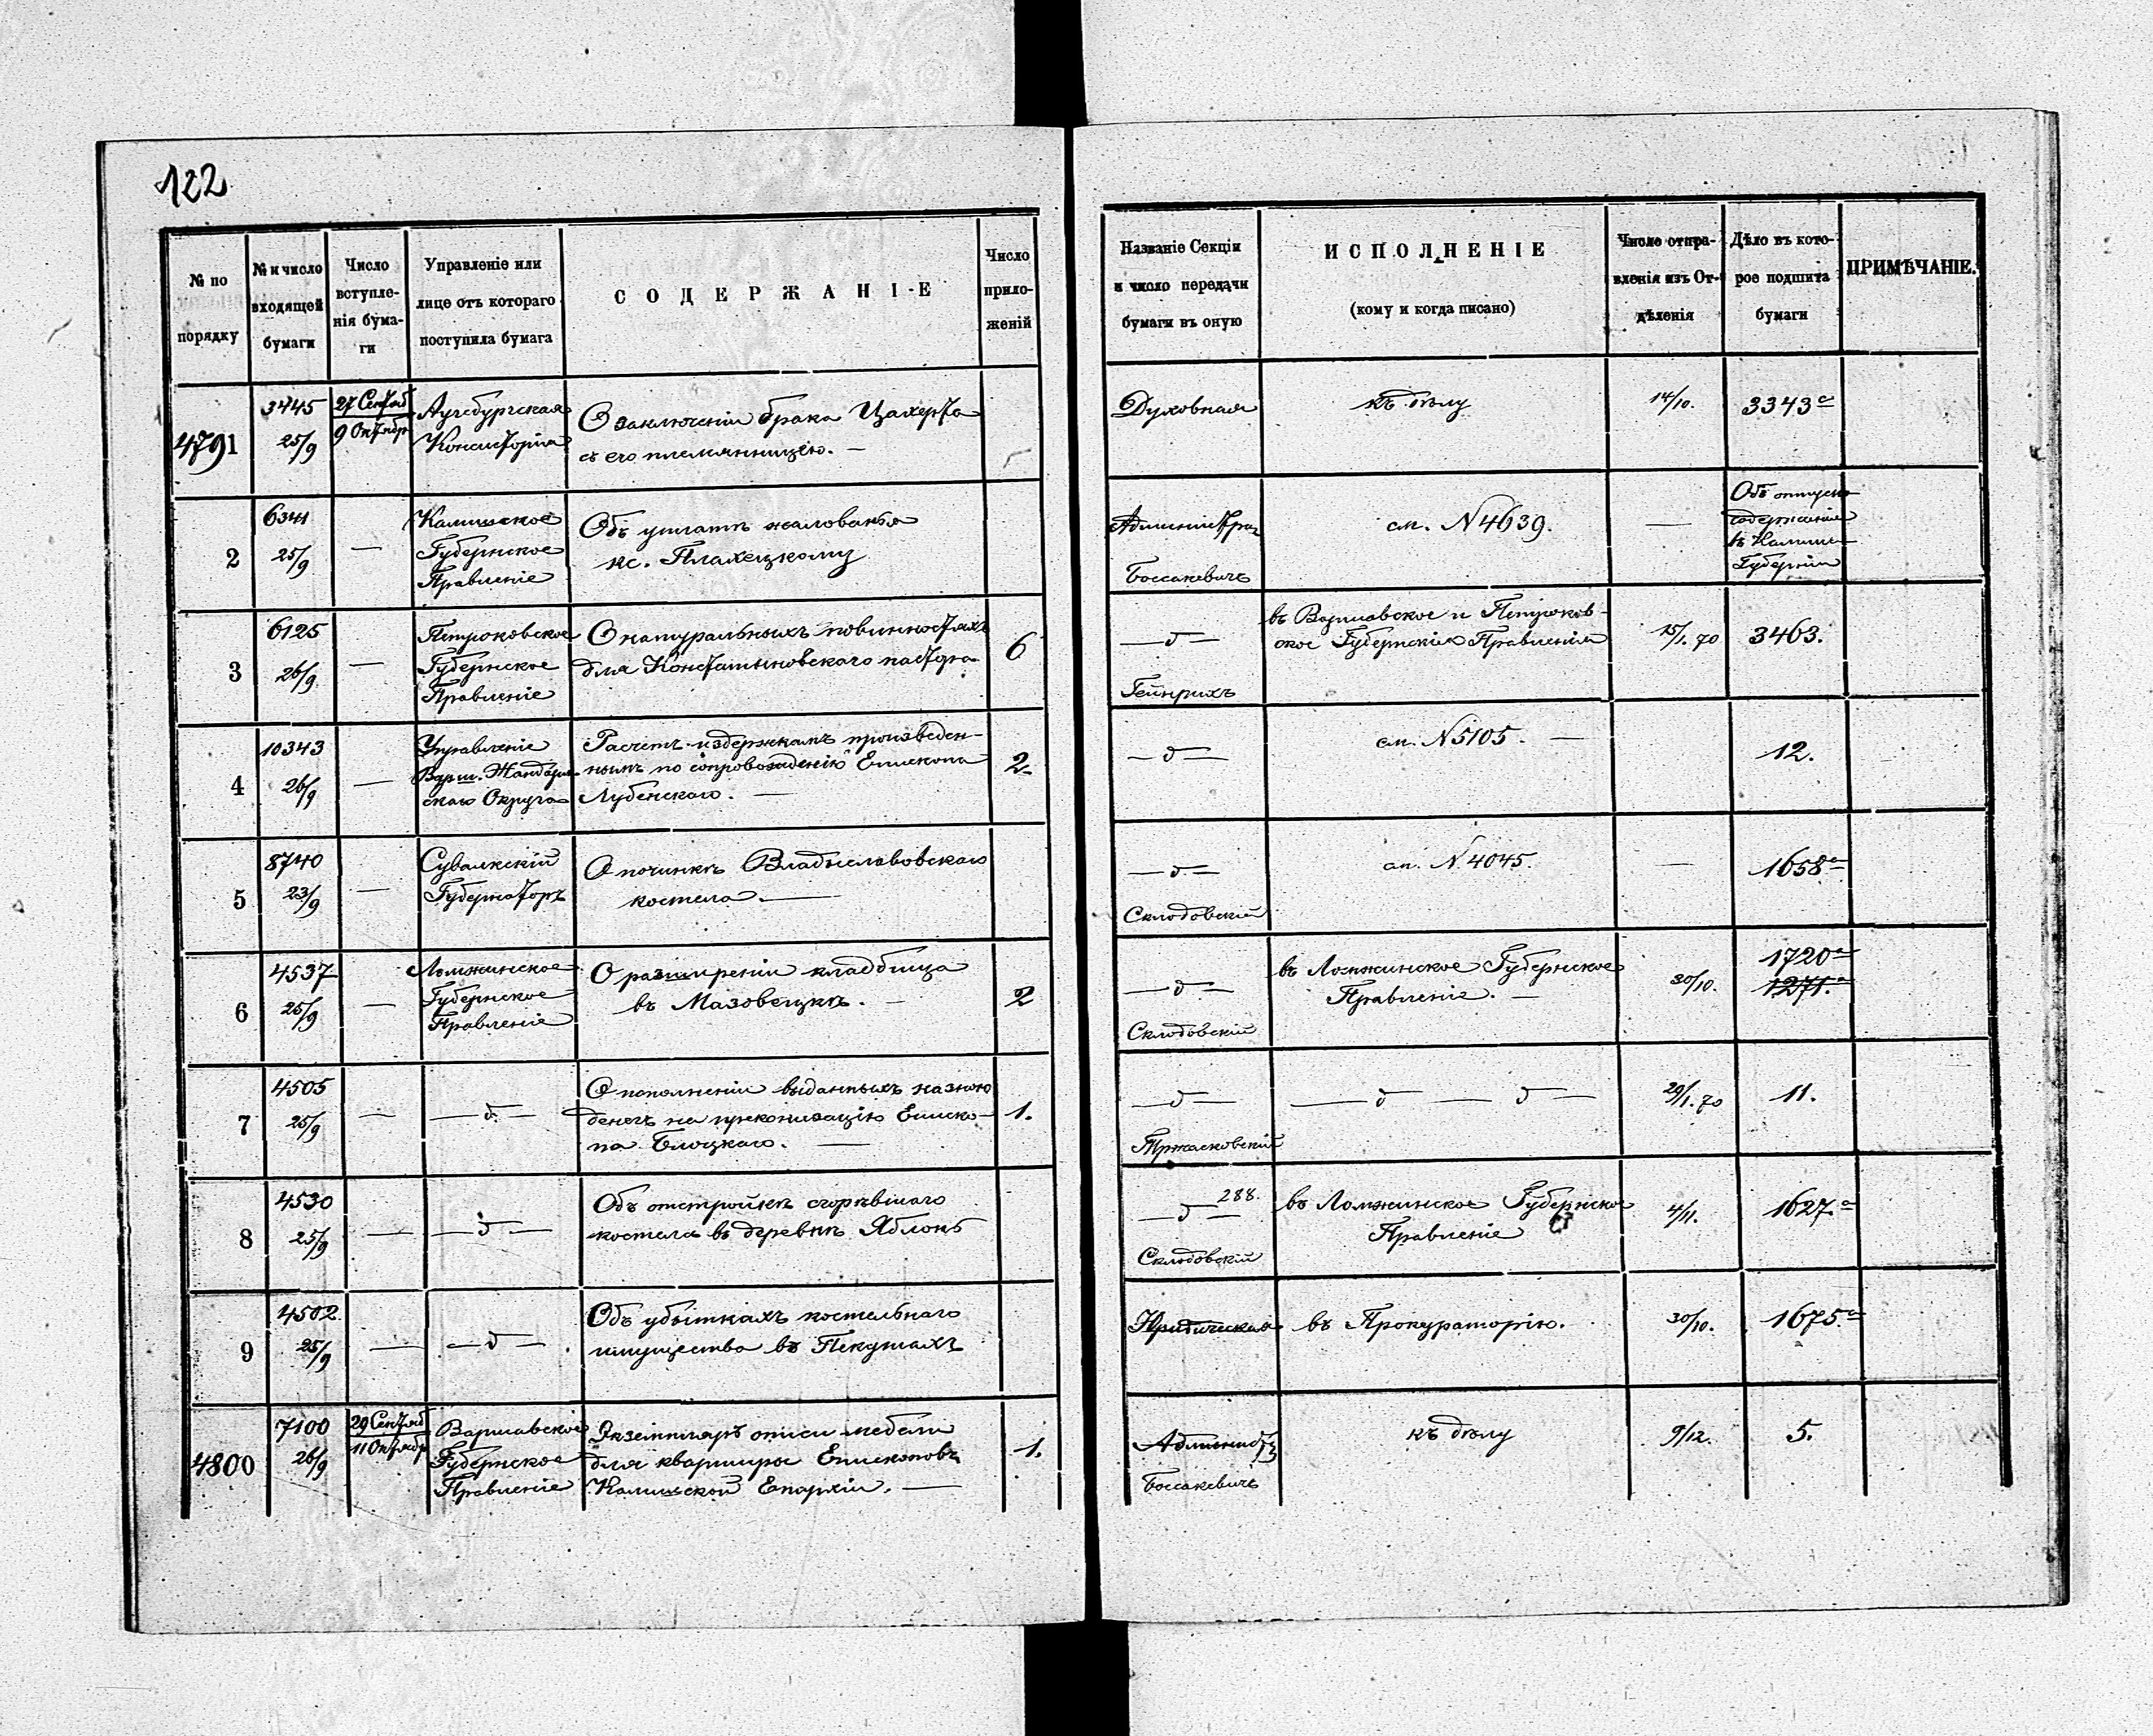 122
№ по порядку
№ и число входящей бумаги
Число вступле-нія бума-ги
Управленіе или лице отъ котораго поступила бумага
СОДЕРЖАНІЕ
Число прило-женій
Названіе Секціи и число передачи бумаги въ оную
ИСПОЛНЕНІЕ
(кому и когда писано)
Число отпра-вленія изъ От-дѣленія
Дѣло въ кото-рое подшита бумаги
ПРИМѢЧАНІЕ.
4791
3445
25/9
27 Сентяб
9 Октябр
Аугсбургская
Консисторія
О заключеніи брака Цахерта
съ его племянницею. —
Духовная
къ дѣлу
14/10.
3343 а
2
6341
25/9
—
Калишское
Губернское
Правленіе
Объ уплатѣ жалованья
кс. Плахецкому
Администра
Боссакевичъ
см. N 4639.
—
Объ отпуске
содержанія
въ Калиш
Губерніи
3
6125
26/9
—
Петроковское
Губернское
Правленіе
О натуральныхъ повинностяхъ
для Константыновскаго пастора
6
— д —
Гейнрихъ
въ Варшавское и Петроков-
ское Губернскія Правленія
15/1. 70
3463.
4
10343
26/9
—
Управленіе
Варш. Жандарм
скаго Округа
Расчетъ издержкамъ произведен-
нымъ по сопровожденію Епископа
Лубенскаго. —
2.
— д —
см. N 5105. —
12.
5
8740
23/9
—
Сувалкскій
Губернаторъ
О починкѣ Владыславовскаго
костела. —
— д —
Склодовскій
см. N 4045.
—
1658 а
6
4537
25/9
—
Ломжинское
Губернское
Правленіе
О разширеніи кладбища
въ Мазовецкѣ. —
2
— д —
Склодовскій
въ Ломжинское Губернское
Правленіе. —
30/10.
1720 а
1271. а
7
4505
25/9
—
— д —
О пополненіи выданныхъ казною
денегъ на преконизацію Еписко-
па Блоцкаго. —
1.
— д —
Тржасковскій
— д — — д —
29/1. 70
11.
8
4530
25/9
—
— д —
Объ отстройкѣ сгорѣвшаго
костела въ деревнѣ Яблонь
— д — 288.
Склодовскій
въ Ломжинское Губернское
Правленіе
4/11.
1627 а
9
4502
25/9
—
— д —
Объ убыткахъ костельнаго
имущества въ Пекутахъ
Юридическая
въ Прокураторію.
30/10.
1675 а
4800
7100
26/9
29 Сентяб
11 Октябр
Варшавское
Губернское
Правленіе
Экземпляръ описи мебели
для квартиры Епископовъ
Калишской Епархіи. —
1.
Боссакевичъ
къ дѣлу
9/12.
5.